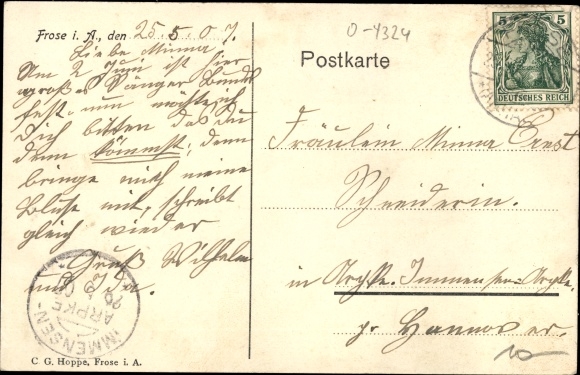 Frose i. A., den 25. 5. 07.
Liebe Minna!
Am 2 Juni ist hier
großes Sänger Bundes
fest. nun möchte ich
Dich bitten das Du
dann kömmst, dann
bringe mich meine
Bluse mit, schreibt
gleich wieder
Gruß Wilhelm
und Ida.
C. G. Hoppe, Frose i. A.
IMMENSEN-
ARPKE
26 5 07
0-4324
Postkarte
5 5
DEUTSCHES REICH
Fräulein Minna Ernst
Schneiderin.
in Arpke. Immensen-Arpke
pr Hannover.
10-